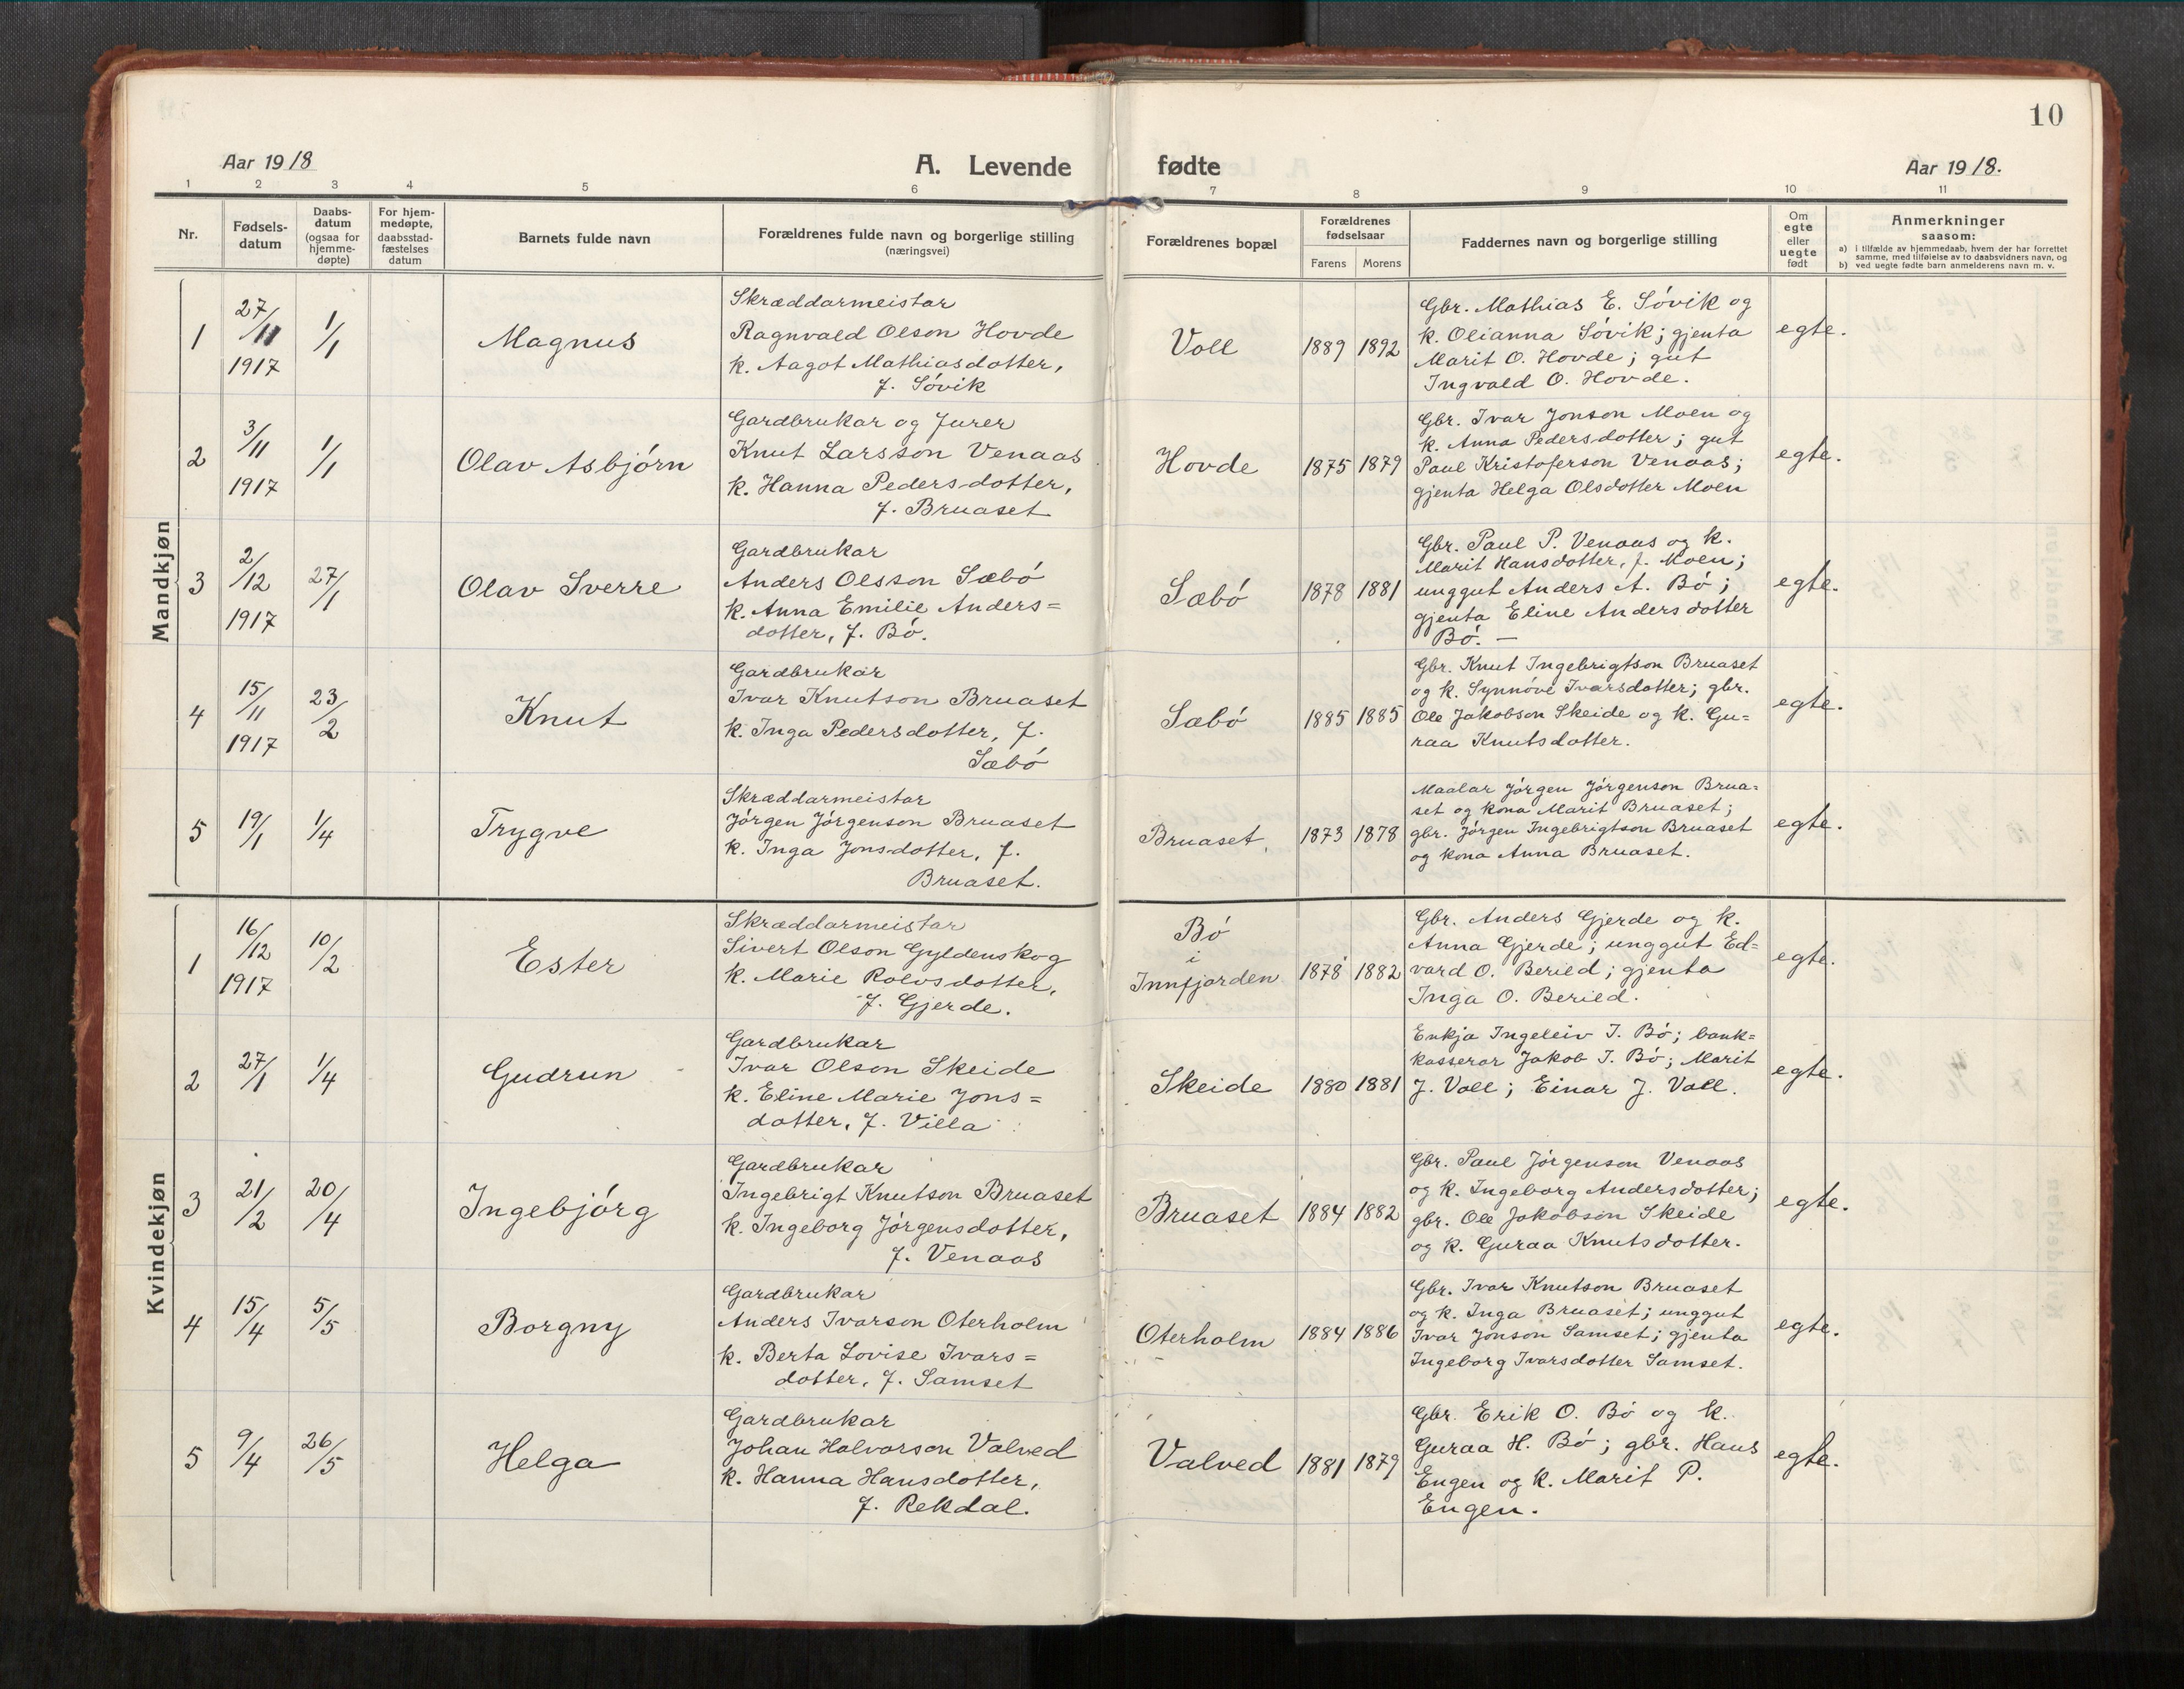 10
Aar 1918
A. Levende fødte
Aar 1918.
1 2 3 4 5 6 7 8 9 10 11
Nr.
Fødsels-
datum
Daabs-
datum
(ogsaa for
hjemme-
døpte)
For hjem-
medøpte,
daabsstad-
fæstelses
datum
Barnets fulde navn
Forældrenes fulde navn og borgerlige stilling
(næringsvei)
Forældrenes bopæl
Forældrenes
fødselsaar
Farens Morens
Faddernes navn og borgerlige stilling
Om
egte
eller
uegte
født
Anmerkninger
saasom:
a) i tilfælde av hjemmedaab, hvem der har forrettet
samme, med tilføielse av to daabsvidners navn, og
b) ved uegte fødte barn anmelderens navn m. v.
Mandkjøn
1
27/11
1917
1/1
Magnus
Skræddarmeistar
Ragnvald Olson Hovde
k. Aagot Mathiasdotter,
f. Sóvik
Voll
1889 1892
Gbr. Mathias E. Sóvik og
k. Olianna Sóvik; gjenta
Marit O. Hovde; gut
Ingvald O. Hovde.
egte.
2
3/11
1917
1/1
Olav Asbjórn
Gardbrukar og Jurer
Knut Larsson Venaas
k. Hanna Pedersdotter,
f. Bruaset
Hovde
1875 1879
Gbr. Ivar Jonson Moen og
k. Anna Pedersdotter; gut
Paul Kristoferson Venaas;
gjenta Helga Olsdotter Moen
egte.
3
2/12
1917
27/1
Olav Sverre
Gardbrukar
Anders Olsson Sæbó
k. Anna Emilie Anders=
dotter, f. Bó.
Sæbó
1878 1881
Gbr. Paul P. Venaas og k.
Marit Hansdotter, f. Moen;
unggut Anders A. Bó;
gjenta Eline Andersdotter
Bó. —
egte.
4
15/11
1917
23/2
Knut
Gardbrukar
Ivar Knutson Bruaset
k. Inga Pedersdotter, f.
Sæbó
Sæbó
1885 1885
Gbr. Knut Ingebrigtson Bruaset
og k. Synnóve Ivarsdotter; gbr.
Ole Jakobson Skeide og k. Gu=
raa Knutsdotter.
egte.
5
19/1
1/4
Trygve
Skræddarmeistar
Jórgen Jórgenson Bruaset
k. Inga Jonsdotter, f.
Bruaset.
Bruaset.
1873 1878
Maalar Jórgen Jórgenson Brua=
set og kona Marit Bruaset;
gbr. Jórgen Ingebrigtson Bruaset
og kona Anna Bruaset.
egte.
Kvindekjøn
1
16/12
1917
10/2
Ester
Skræddarmeistar
Sivert Olson Gyldenskog
k. Marie Rolvsdotter,
f. Gjerde.
Bó
i
Innfjorden
1878 1882
Gbr. Anders Gjerde og k.
Anna Gjerde; unggut Ed=
vard O. Beried; gjenta
Inga O. Beried.
egte.
2
27/1
1/4
Gudrun
Gardbrukar
Ivar Olson Skeide
k. Eline Marie Jons=
dotter, f. Villa
Skeide
1880 1881
Enkja Ingeleiv I. Bó; bank=
kasserar Jakob I. Bó; Marit
J. Voll; Einar J. Voll.
egte.
3
21/2
20/4
Ingebjórg
Gardbrukar
Ingebrigt Knutson Bruaset
k. Ingeborg Jórgensdotter,
f. Venaas
Bruaset
1884 1882
Gbr. Paul Jórgenson Venaas
og k. Ingeborg Andersdotter;
gbr. Ole Jakobson Skeide
og k. Guraa Knutsdotter.
egte.
4
15/4
5/5
Borgny
Gardbrukar
Anders Ivarson Oterholm
k. Berta Lovise Ivars=
dotter, f. Samset
Oterholm
1884 1886
Gbr. Ivar Knutson Bruaset
og k. Inga Bruaset; unggut
Ivar Jonson Samset; gjenta
Ingeborg Ivarsdotter Samset.
egte.
5
9/4
26/5
Helga
Gardbrukar
Johan Halvorson Valved
k. Hanna Hansdotter,
f. Rekdal.
Valved
1881 1879
Gbr. Erik O. Bó og k.
Guraa H. Bó; gbr. Hans
Engen og k. Marit P.
Engen.
egte.